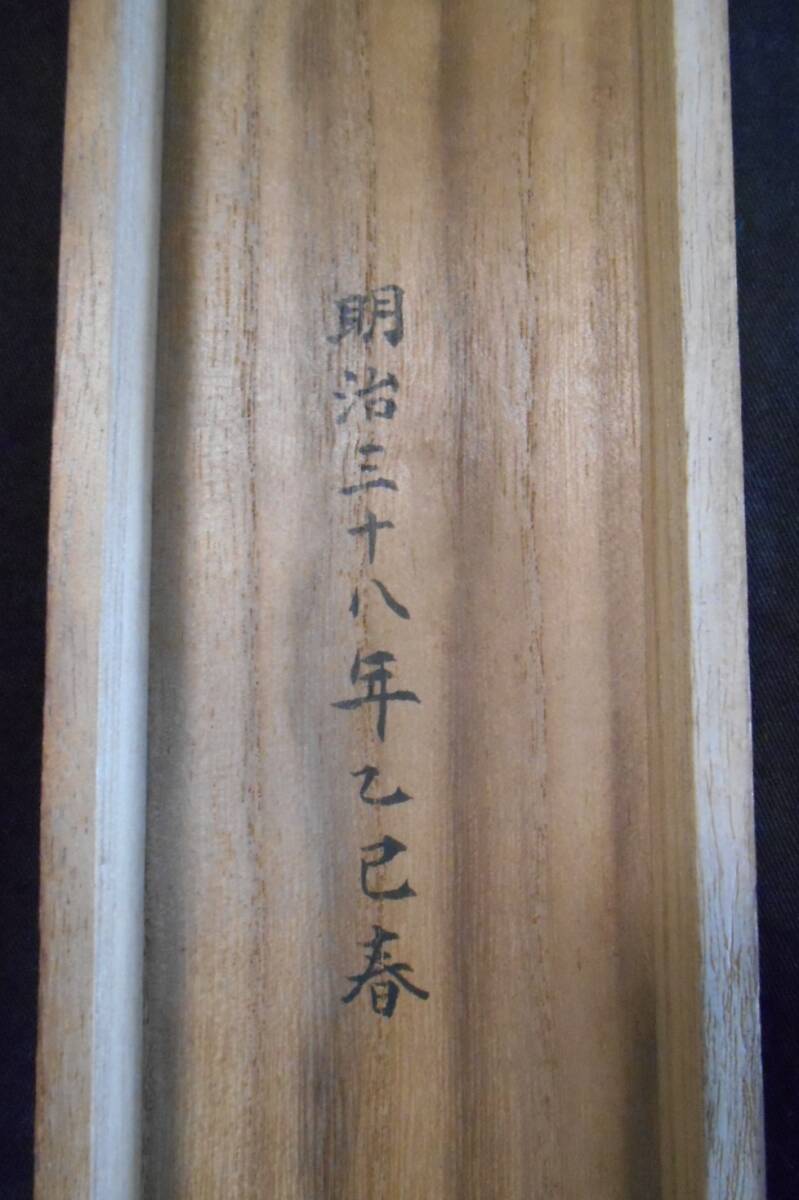 明治三十八年乙巳春